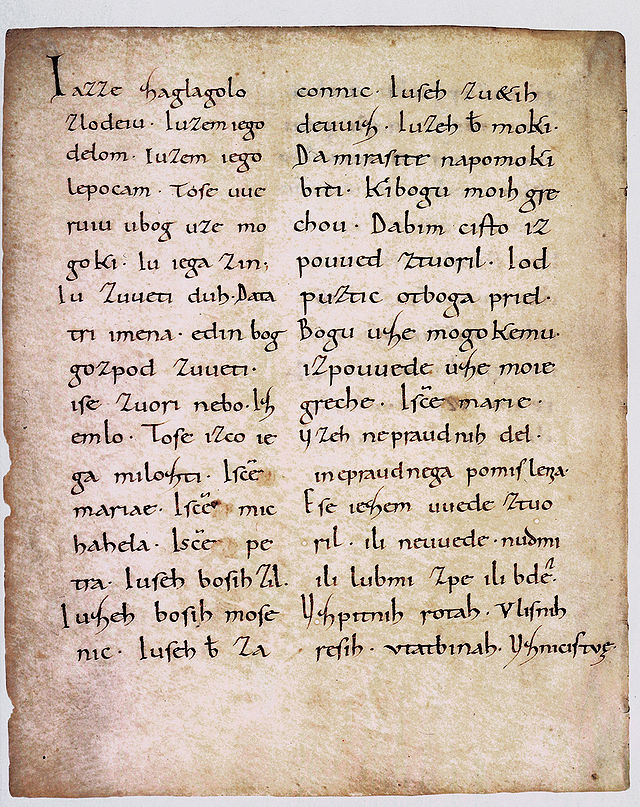 Iazze zaglagolo
zlodeiu· Iuzem iego
delom· Iuzem iego
lepocam· Tose uue
ruiu ubog uze mo
goki· Iu iega zin;
Iu zuueti duh· Data
tri imena· edin bog
gozpod zuueti·
ise zuori nebo· Iz
emlo· Tose izco ie
ga milozti· Isce
mariae· Isce mic
hahela· Isce pe
tra· Iuseh bosih zil·
Iuzeh bosih mose
nic· Iuseh b za
connic· Iuseh zu&ih
deuuiz· Iuzeh b moki·
Da mi rasite napomoki
biti· Kibogu moih gre
chou· Dabim cisto iz
pouued ztuoril· Iod
puztic otboga priel·
Bogu uze mogokemu·
izpouuede uze moie
greche· Isce marie·
Uzeh nepraudnih del·
inepraudnega pomisleza·
Ese iezem uuede ztuo
ril· ili neuuede· nudmi
ili lubmi zpe ili bde·
Uzpitnih rotah· Vlisnih
resih· vtatbinah· Uznicistve·